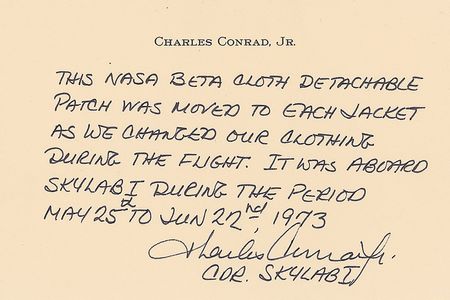 CHARLES CONRAD, JR.
THIS NASA BETA CLOTH DETACHABLE
PATCH WAS MOVED TO EACH JACKET
AS WE CHANGED OUR CLOTHING
DURING THE FLIGHT. IT WAS ABOARD
SKYLAB I DURING THE PERIOD
MAY 25th TO JUN 22nd, 1973
Charles Conrad Jr.
CDR. SKYLAB I